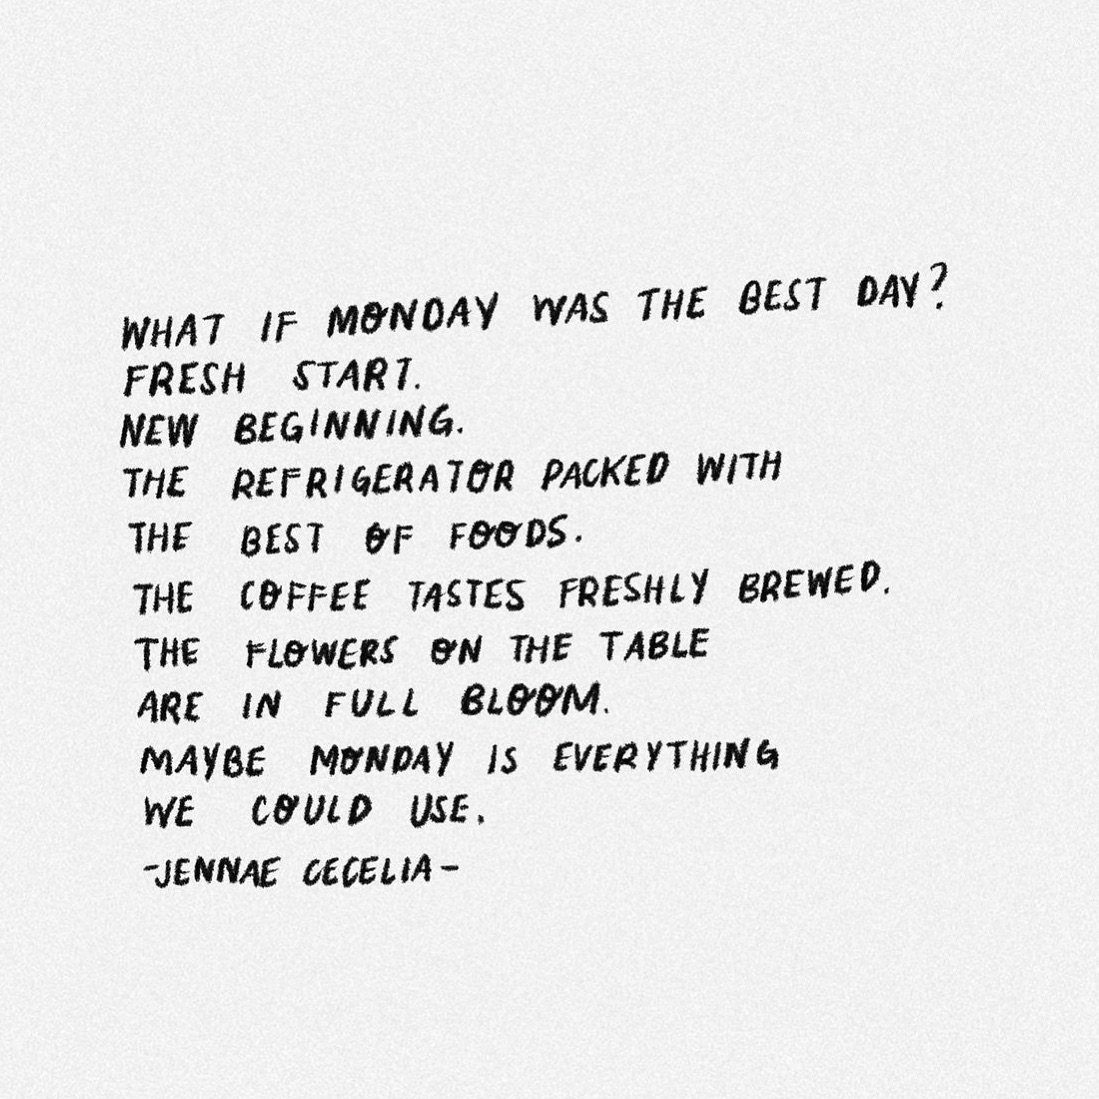 WHAT IF MONDAY WAS THE BEST DAY?
FRESH START.
NEW BEGINNING.
THE REFRIGERATOR PACKED WITH
THE BEST OF FOODS.
THE COFFEE TASTES FRESHLY BREWED.
THE FLOWERS ON THE TABLE
ARE IN FULL BLOOM.
MAYBE MONDAY IS EVERYTHING
WE COULD USE.
-JENNAE CECELIA-